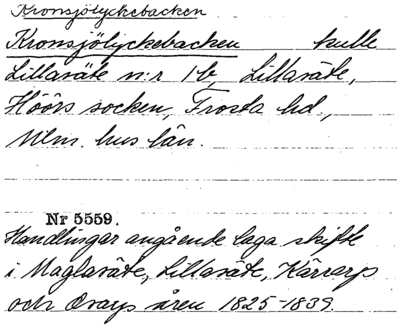 Kronsjölyckebacken
Kronsjölyckebacken kulle
Lillaräte n:r 1 b, Lillaräte,
Höörs socken, Frosta hd.,
Mlm. hus län.
Nr 5559.
Handlingar angående laga skifte
i Maglaräte, Lillaräte, Kärrarp
och Orarp åren 1825-1839.